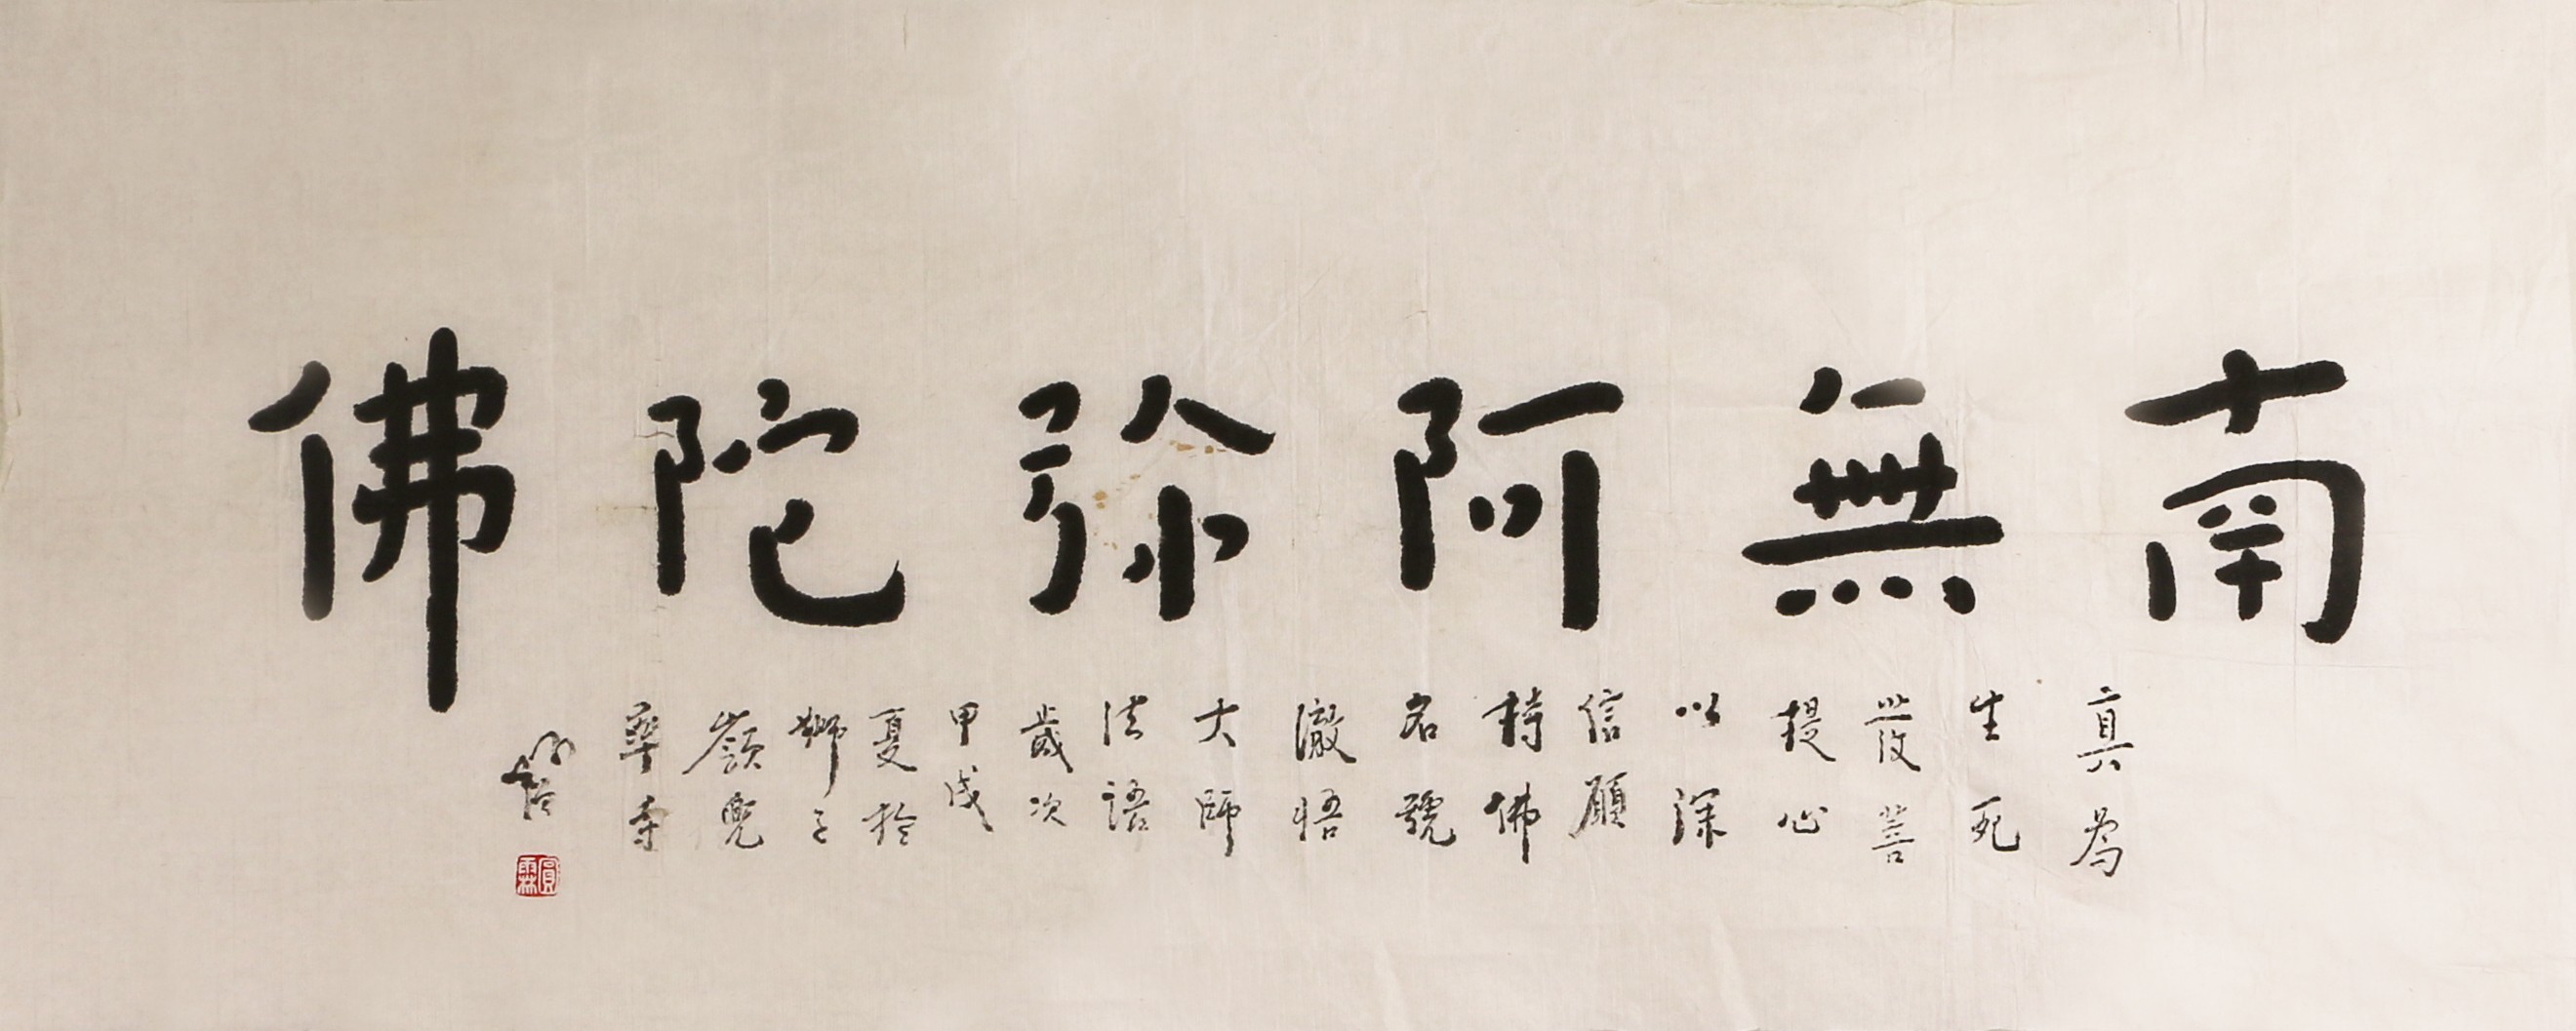 南無阿弥陀佛
真為
生死
發菩
提心
以深
信願
持佛
名號
徹悟
大師
法語
歲次
甲戌
夏於
獅子
嶺兜
率寺
圓霖